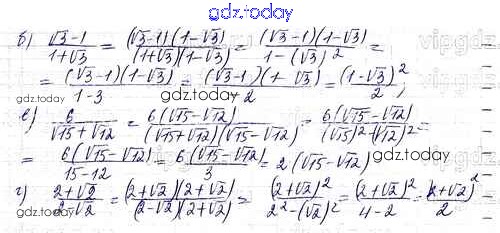 gdz.today
б) (√3-1)/(1+√3) = ((√3-1)(1-√3))/((1+√3)(1-√3)) = ((√3-1)(1-√3))/(1-(√3)²) =
gdz.today
= ((√3-1)(1-√3))/(1-3) = ((√3-1)(1-√3))/(-2) = (1-√3)²/2;
gdz.today
в) 6/(√15+√12) = 6(√15-√12)/((√15+√12)(√15-√12)) = 6(√15-√12)/((√15)²-(√12)²) =
= 6(√15-√12)/(15-12) = 6(√15-√12)/3 = 2(√15-√12)
gdz.today
г) (2+√2)/(2-√2) = ((2+√2)(2+√2))/((2-√2)(2+√2)) = (2+√2)²/(2²-(√2)²) = (2+√2)²/(4-2) = (2+√2)²/2